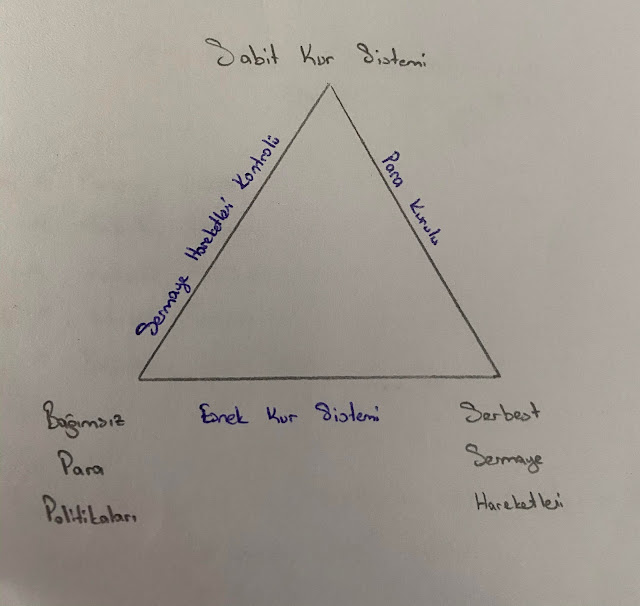 Sabit Kur Sistemi
Sermaye Hareketleri Kontrolü
Para Kurulu
Bağımsız
Para
Politikaları
Esnek Kur Sistemi
Serbest
Sermaye
Hareketleri